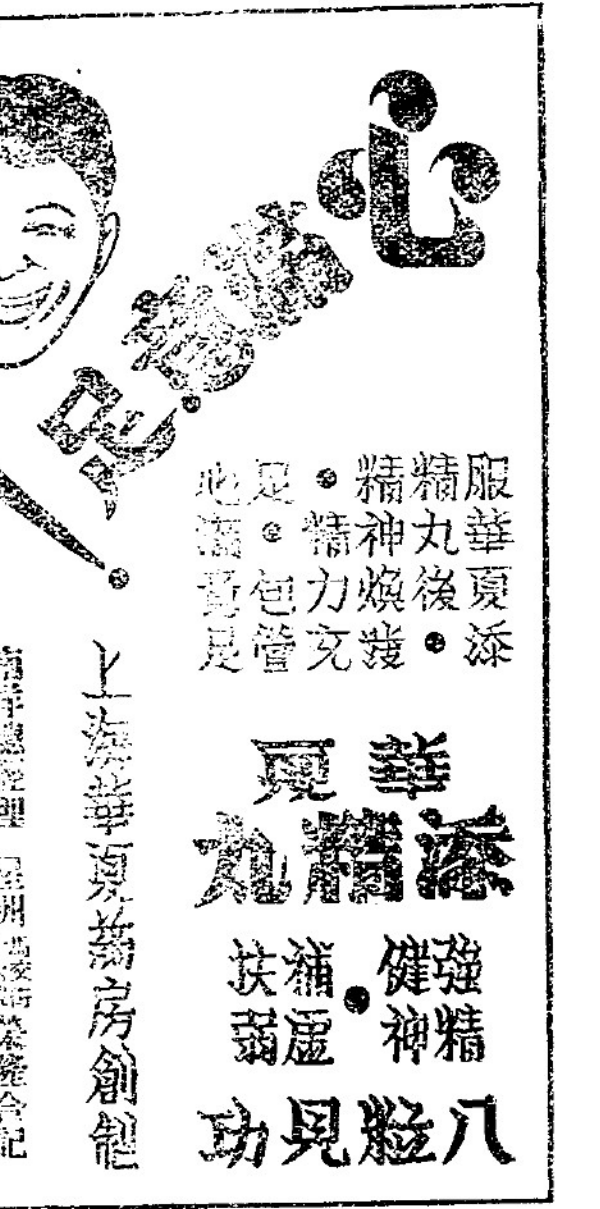 心滿意足
服華夏添
精丸後●
精神煥發
●精力充
足●包管
滿意足
華夏
添精丸
強精
健神
●
補虛
扶弱
八粒見功
上海華夏葯房創製